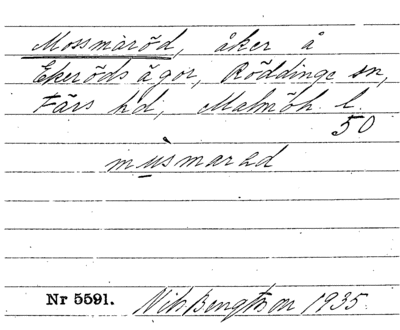 Mossmaröd, åker å
Ekeröds ägor, Röddinge sn,
Färs hd, Malmöh. l.
50
mùsmarəd
Nr 5591. Nih. Bengtsson 1935.